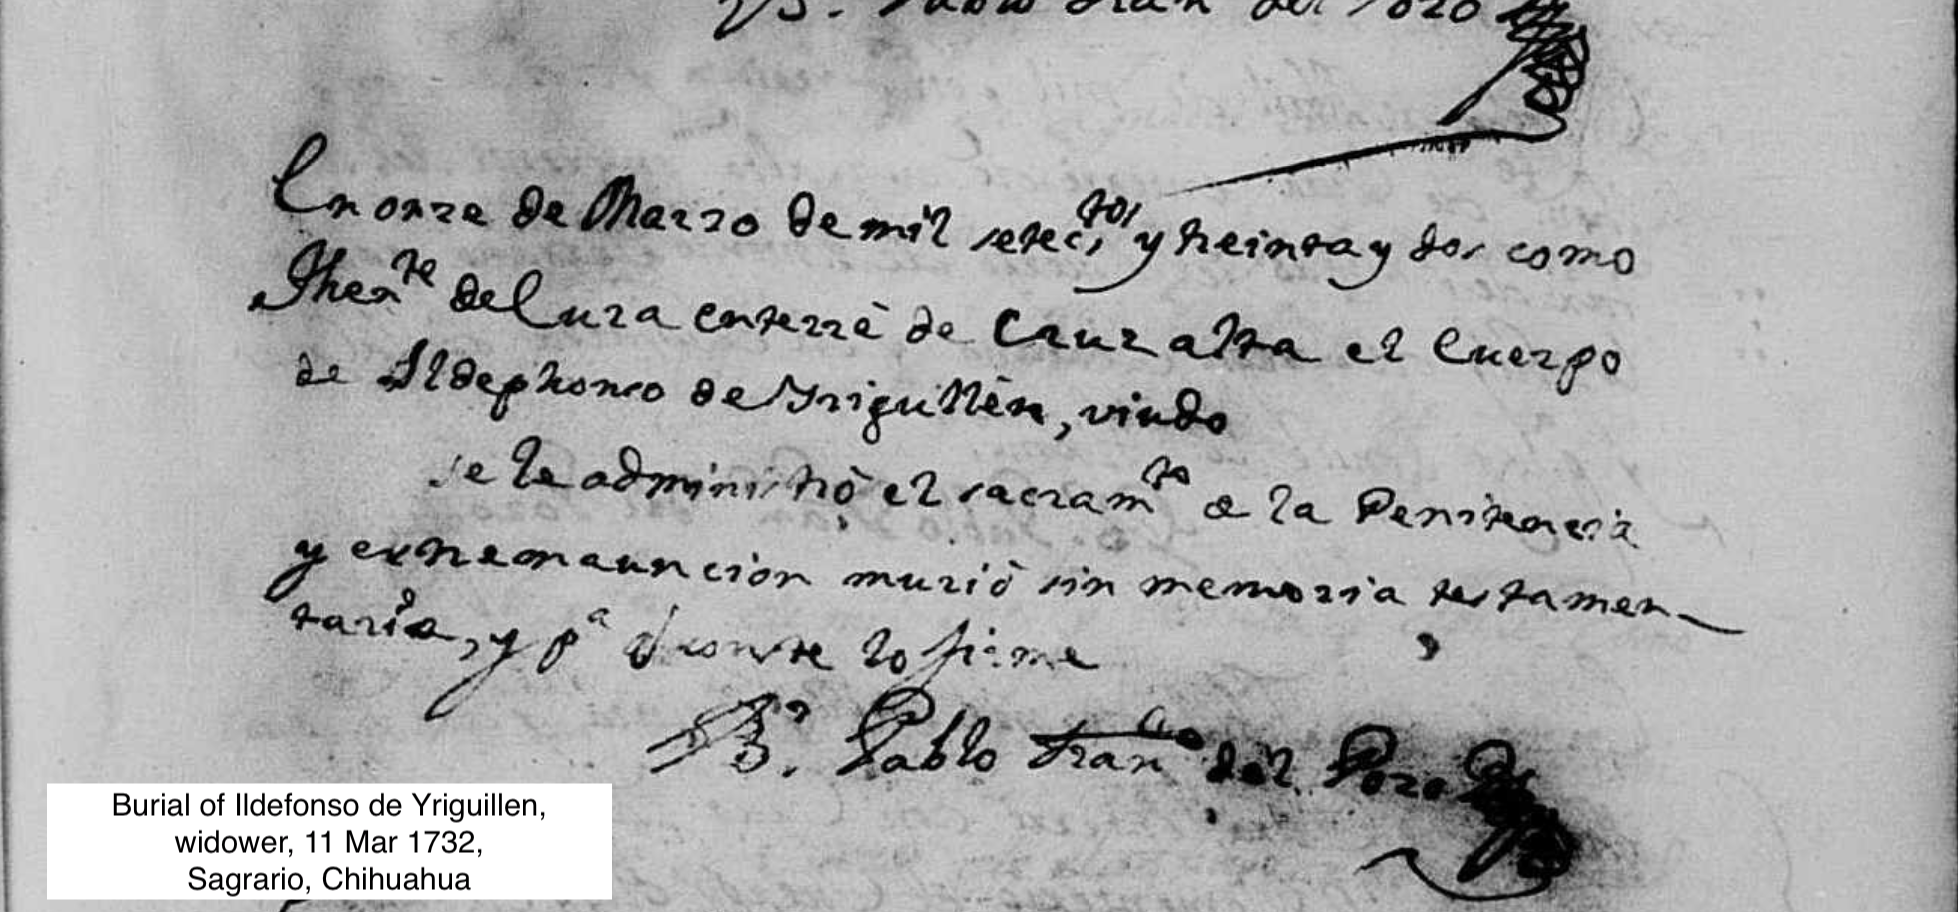 B.r Pablo Fran del Pozo
En onze de Marzo de mil setec.s tos y treinta y dos como
Thente del Cura enterrè de Cruz alta el Cuerpo
de Ildephonso de Yriguillèn, viudo
se le administrò el sacramto de la Penitencia
y extremauncion muriò sin memoria testamen-
taria, y pa q conste lo firme
B.r Pablo Franco del Pozo
Burial of Ildefonso de Yriguillen,
widower, 11 Mar 1732,
Sagrario, Chihuahua